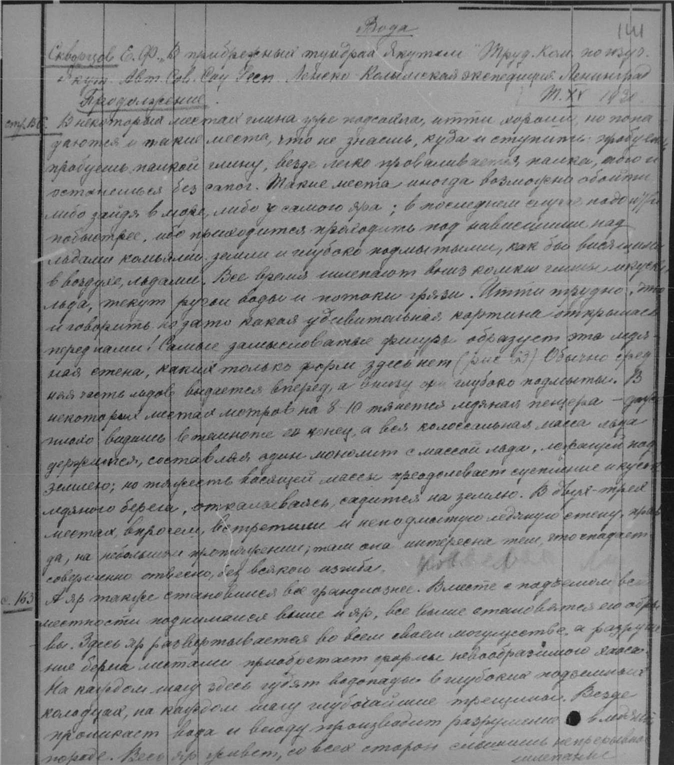 Вода
141
Скворцов Е.Ф. „В прибрежных тундрах Якутии" Труд. Ком. по изуч.
Якут. Авт. Сов. Соц. Респ. Ленско-Колымская экспедиция Ленинград
Продолжение. Т. XV 1930.
стр. В некоторых местах глина уже подсохла, итти хорошо, но попа
даются и такие места, что не знаешь, куда и ступить: пробуешь,
пробуешь палкой глину, везде легко проваливается палка, того и
останешься без сапог. Такие места иногда возможно обойти
либо зайдя в море, либо у самого яра; в последнем случае надо итти
побыстрее, ибо приходится проходить под нависшими над
льдами комьями земли и глубоко подмытыми, как бы висящими
в воздухе, льдами. Все время шлепают вниз комки глины и куски
льда, текут ручьи воды и потоки грязи. Итти трудно, что
и говорить, но зато какая удивительная картина открылась
перед нами! Самые замысловатые фигуры образует эта ледя-
ная стена, каких только форм здесь нет (рис 23) Обычно сред
няя часть льдов выдается вперед, а внизу они глубоко подмыты. В
некоторых местах метров на 8-10 тянется ледяная пещера –
плохо видишь в темноте ее конец, а вся колоссальная масса льда
держится, составляя один монолит с массой льда, лежащей под
землею; но тяжесть висящей массы преодолевает сцепление и кусок
ледяного берега, откалываясь, садится на землю. В двух-трех
местах, впрочем, встретили и неподмытую ледяную стену, прав
да, на небольшом протяжении; там она интересна тем, что спадает
совершенно отвесно, без всякого изгиба.
с. 163 А яр также становился все грандиознее. Вместе с подъемом всей
местности поднимался выше и яр, все выше становятся его обры
вы. Здесь яр развертывается во всем своем могуществе, а разруше
ние берега местами приобретает формы невообразимого хаоса.
На каждом шагу здесь гудят водопады в глубоких подземных
колодцах, на каждом шагу глубочайшие трещины. Везде
проникает вода и всюду производит разрушение в ледяной
породе. Весь яр живет, со всех сторон слышишь непрерывное
шлепанье